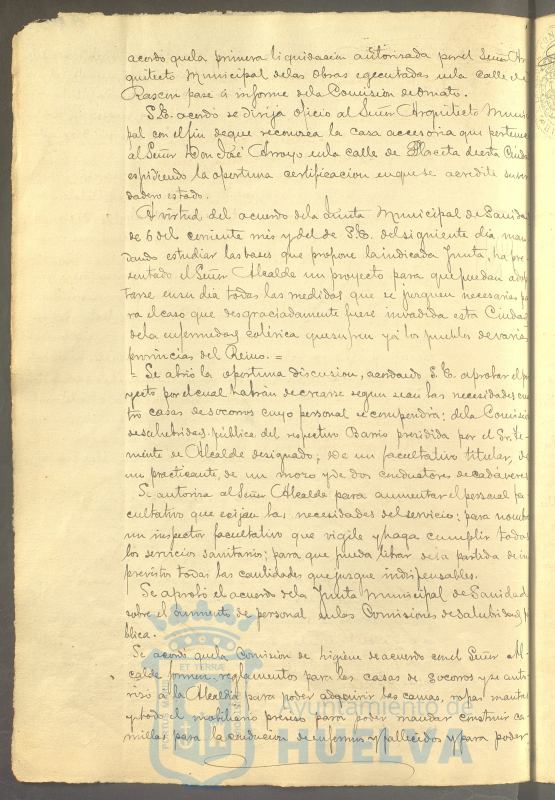 acordo quela primera liquidacion autorizada porel Señor Ar
quitecto Municipal delas obras egecutadas enla calle de
Rascon pase á informe dela Comision deornato.
S.E. acordó se dirija oficio al Señor Arquitecto Munici
pal con el fin deque reconozca la casa accesoria que pertenece
al Señor Don José Arroyo enla calle de Placeta deesta Ciudad
espidiendo la oportuna certificacion enquese acredite suver
dadero estado.
A virtud del acuerdo dela Junta Municipal de Sanidad
de 6 del corriente mes y del de S.E. del siguiente dia man
dando estudiar las bases que propone la indicada Junta, ha pre
sentado el Señor Alcalde un proyecto para que puedan adop
tarse ensu dia todas las medidas que se juzguen necesarias pa
ra el caso que desgraciadamente fuese invadida esta Ciudad
dela enfermedad colérica que sufren ya los pueblos de varias
provincias del Reino. =
- Se abrió la oportuna discusion, acordando S.E. aprobar el pro
yecto por el cual habrán de crearse segun sean las necesidades cua
tro casas de socorros cuyo personal se compondrá: dela Comision
desalubridad pública del respectivo Barrio presidida por el Sr. Te
niente de Alcalde designado; De un facultativo titular, de
un practicante, de un mozo y de dos conductores de cadáveres
Se autoriza al Señor Alcalde para aumentar el personal fa
cultativo que exijan las necesidades del servicio; para nombrar
un inspector facultativo que vigile y haga cumplir todos
los servicios sanitarios; para que pueda librar dela partida de im
previstos todas las cantidades que juzgue indispensables.
Se aprobó el acuerdo dela Junta Municipal de Sanidad
sobre el aumento de personal enlas Comisiones de salubridad pú
blica.
Se acordó quela Comision de higiene de acuerdo conel Señor Al
calde formen reglamentos para las casas de socorros y se auto
rizó á la Alcaldia para poder adquirir las camas, ropas mantas
y todo el mobiliario preciso para poder mandar construir ca
millas para la conducion de enfermos y fallecidos y para poder
ET TERRAE
Ayuntamiento de
HUELVA